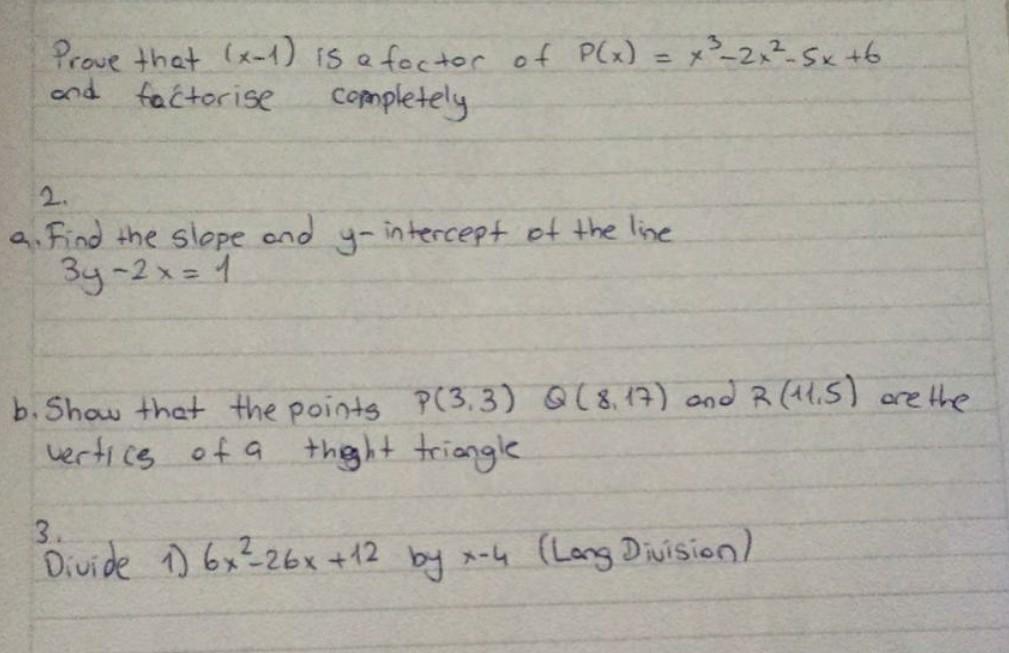 Prove that (x-1) is a factor of P(x) = x³-2x²-5x+6
and factorise completely
2.
a. Find the slope and y-intercept of the line
3y-2x=1
b. Show that the points P(3,3) Q(8,17) and R(11,5) are the
vertics of a thight triangle
3.
Divide 1) 6x²-26x+12 by x-4 (Long Division)